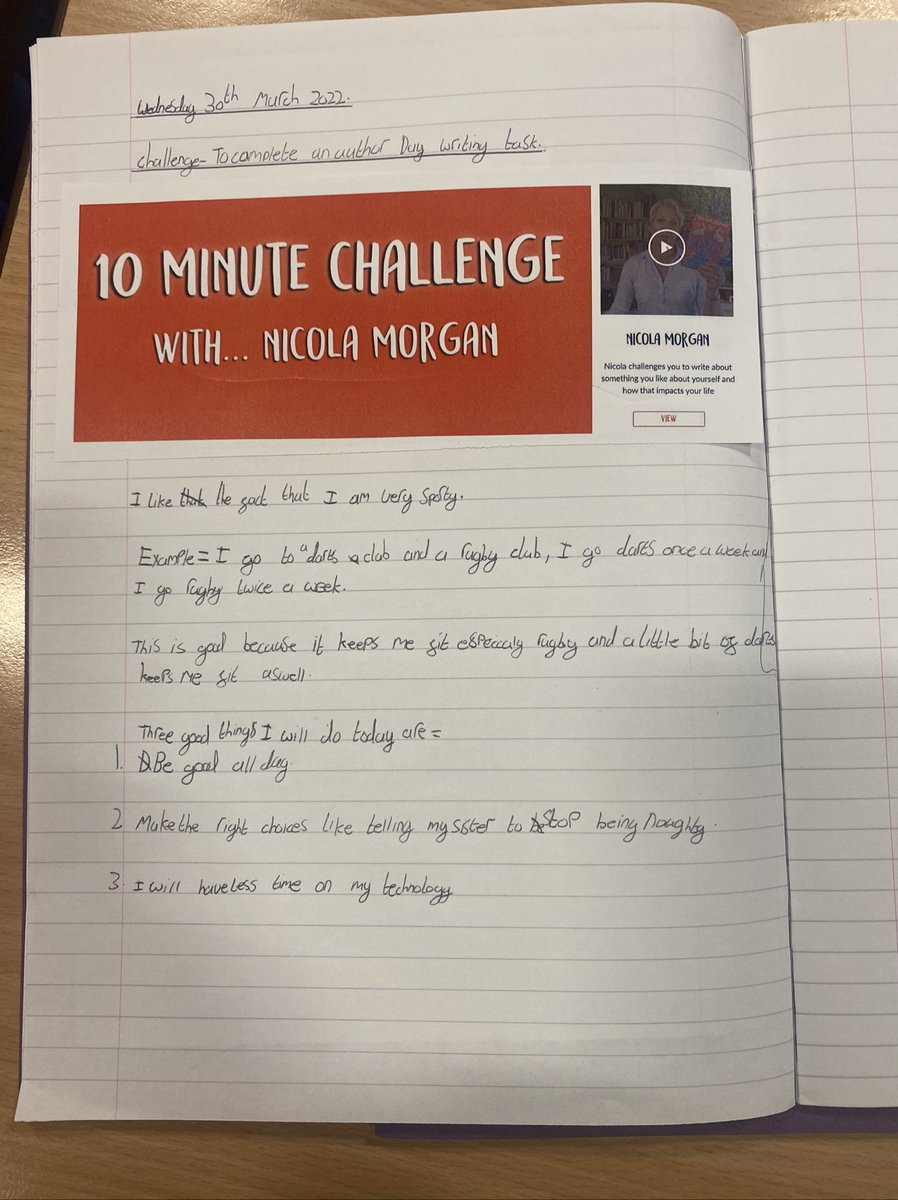 Wednesday 30th March 2022.
Challenge - To complete an author Day writing task.
10 MINUTE CHALLENGE
WITH... NICOLA MORGAN
NICOLA MORGAN
Nicola challenges you to write about
something you like about yourself and
how that impacts your life
VIEW
I like that the fact that I am very sporty.
Example = I go to a darts club and a rugby club, I go darts once a week and
I go rugby twice a week.
This is good because it keeps me fit especialy rugby and a little bit of darts
keeps me fit aswell.
Three good things I will do today are =
1. Be good all day.
2 Make the right choices like telling my sister to stop being Noughty.
3. I will have less time on my technology